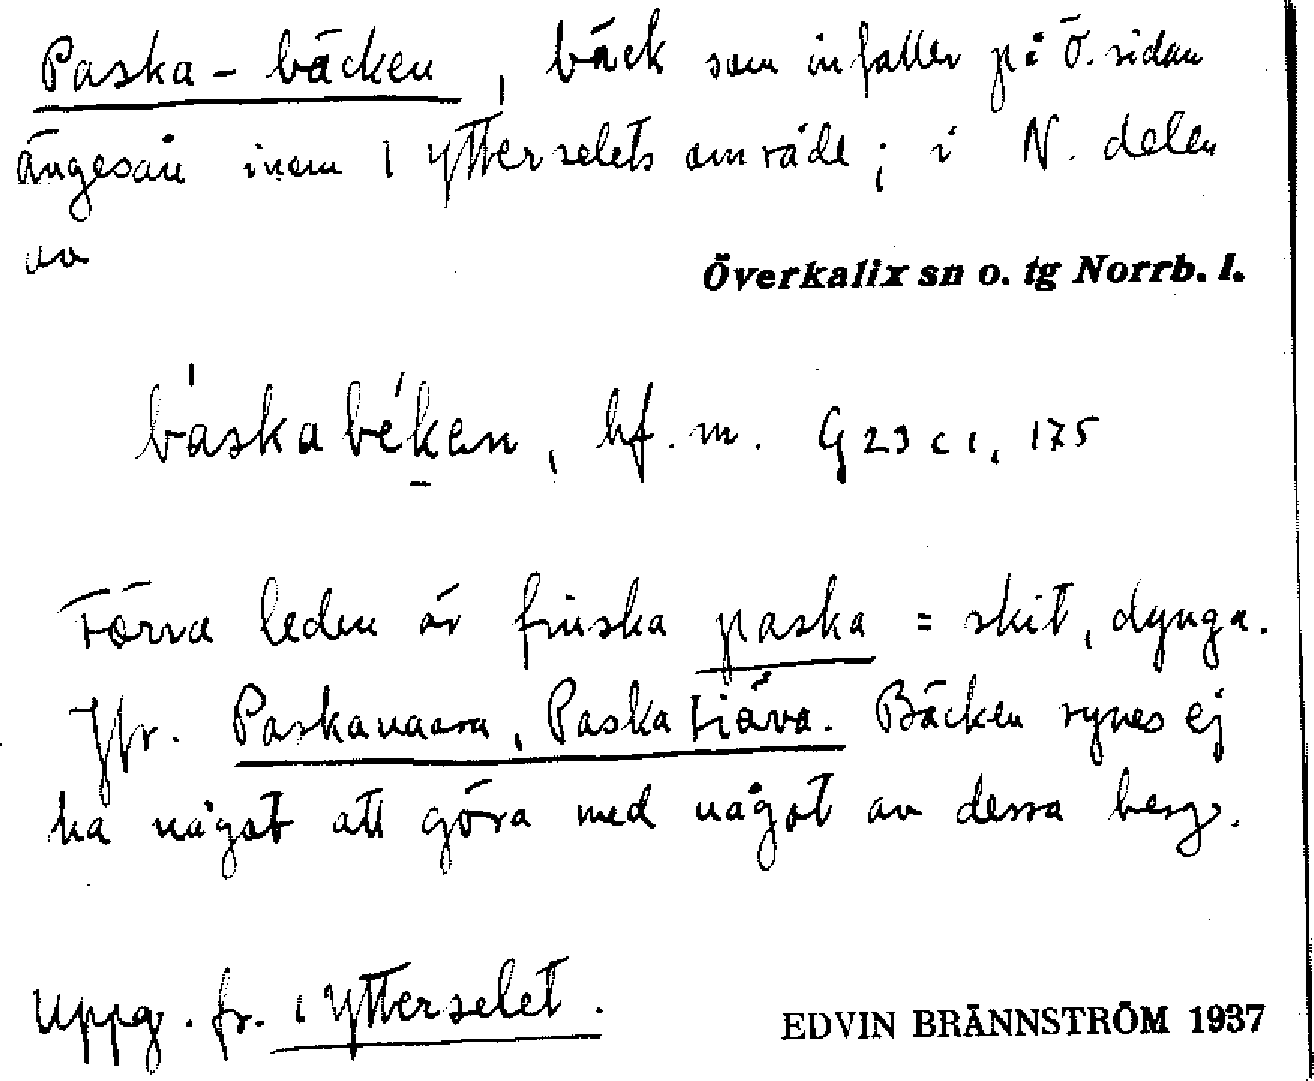 Paska-bäcken, bäck som infaller på Ö. sidan
Ängesån inom 1 Ytterselets område; i N. delen
va
Överkalix sn o. tg Norrb. l.
báskabéken, hf. m. G 23 c 1, 175
Förra leden är finska paska = skit, dynga.
Jfr. Paskavaara, Paskatiåva. Bäcken synes ej
ha något att göra med något av dessa berg.
Uppg. fr. 1 Ytterselet.
EDVIN BRÄNNSTRÖM 1937